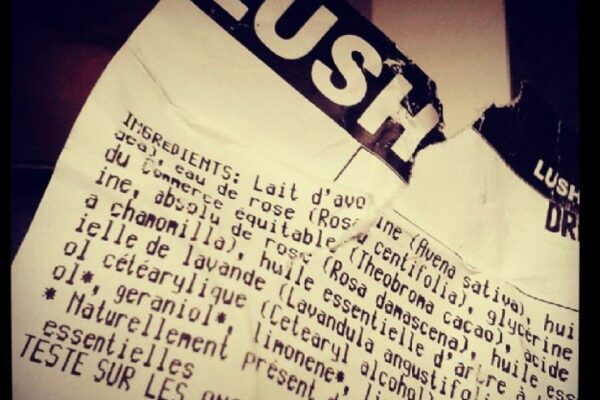 LUSH
LUSH
DR
INGREDIENTS: Lait d'avoine (Avena sativa), hui
eau de rose (Rosa centifolia), glycérine
du Commerce équitable (Theobroma cacao), acide
ine, absolu de rose (Rosa damascena), huile ess
a chamomilla), huile essentielle d'arbre à
ielle de lavande (Lavandula angustifol
ol cétéarylique (Cetearyl alcohol)
ol*, geraniol*, limonene*, li
* Naturellement présent d
essentielles
TESTE SUR LES